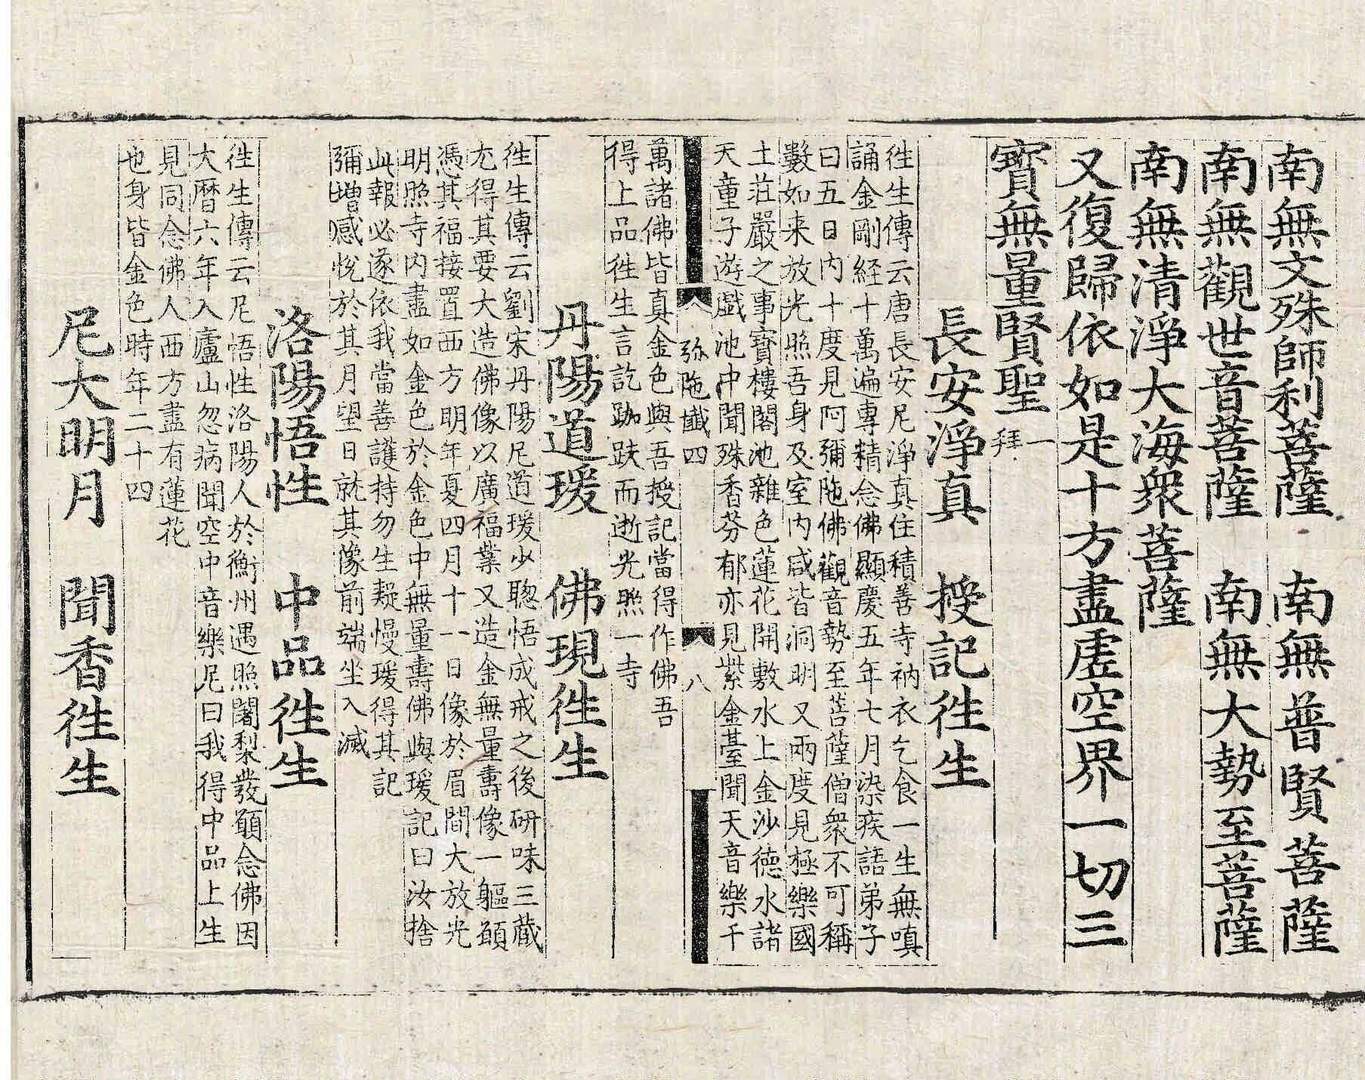 南無文殊師利菩薩　南無普賢菩薩
南無觀世音菩薩　南無大勢至菩薩
南無清淨大海衆菩薩
又復歸依如是十方盡虛空界一切三
寶無量賢聖一拜
長安淨真　授記徃生
徃生傳云唐長安尼淨真住積善寺衲衣乞食一生無嗔
誦金剛經十萬遍專精念佛顯慶五年七月染疾語弟子
曰五日內十度見阿彌陁佛觀音勢至菩薩僧衆不可稱
數如来放光照吾身及室内咸皆洞明又兩度見極樂國
土莊嚴之事寶樓閣池雜色蓮花開敷水上金沙德水諸
天童子遊戲池中聞殊香芬郁亦見紫金臺聞天音樂千
弥陁懴四　八
萬諸佛皆真金色與吾授記當得作佛吾
得上品徃生言訖跏趺而逝光照一寺
丹陽道瑗　佛現徃生
徃生傳云劉宋丹陽尼道瑗少聰悟成戒之後研味三藏
尤得其要大造佛像以廣福業又造金無量壽像一軀願
憑其福接置西方明年夏四月十一日像於眉間大放光
明照寺内盡如金色於金色中無量壽佛與瑗記曰汝捨
此報必逐依我當善護持勿生疑慢瑗得其記
彌增感悅於其月望日就其像前端坐入滅
洛陽悟性　中品徃生
徃生傳云尼悟性洛陽人於衡州遇照闍梨發願念佛因
大曆六年入廬山忽病聞空中音樂尼曰我得中品上生
見同念佛人西方盡有蓮花
也身皆金色時年二十四
尼大明月　聞香徃生